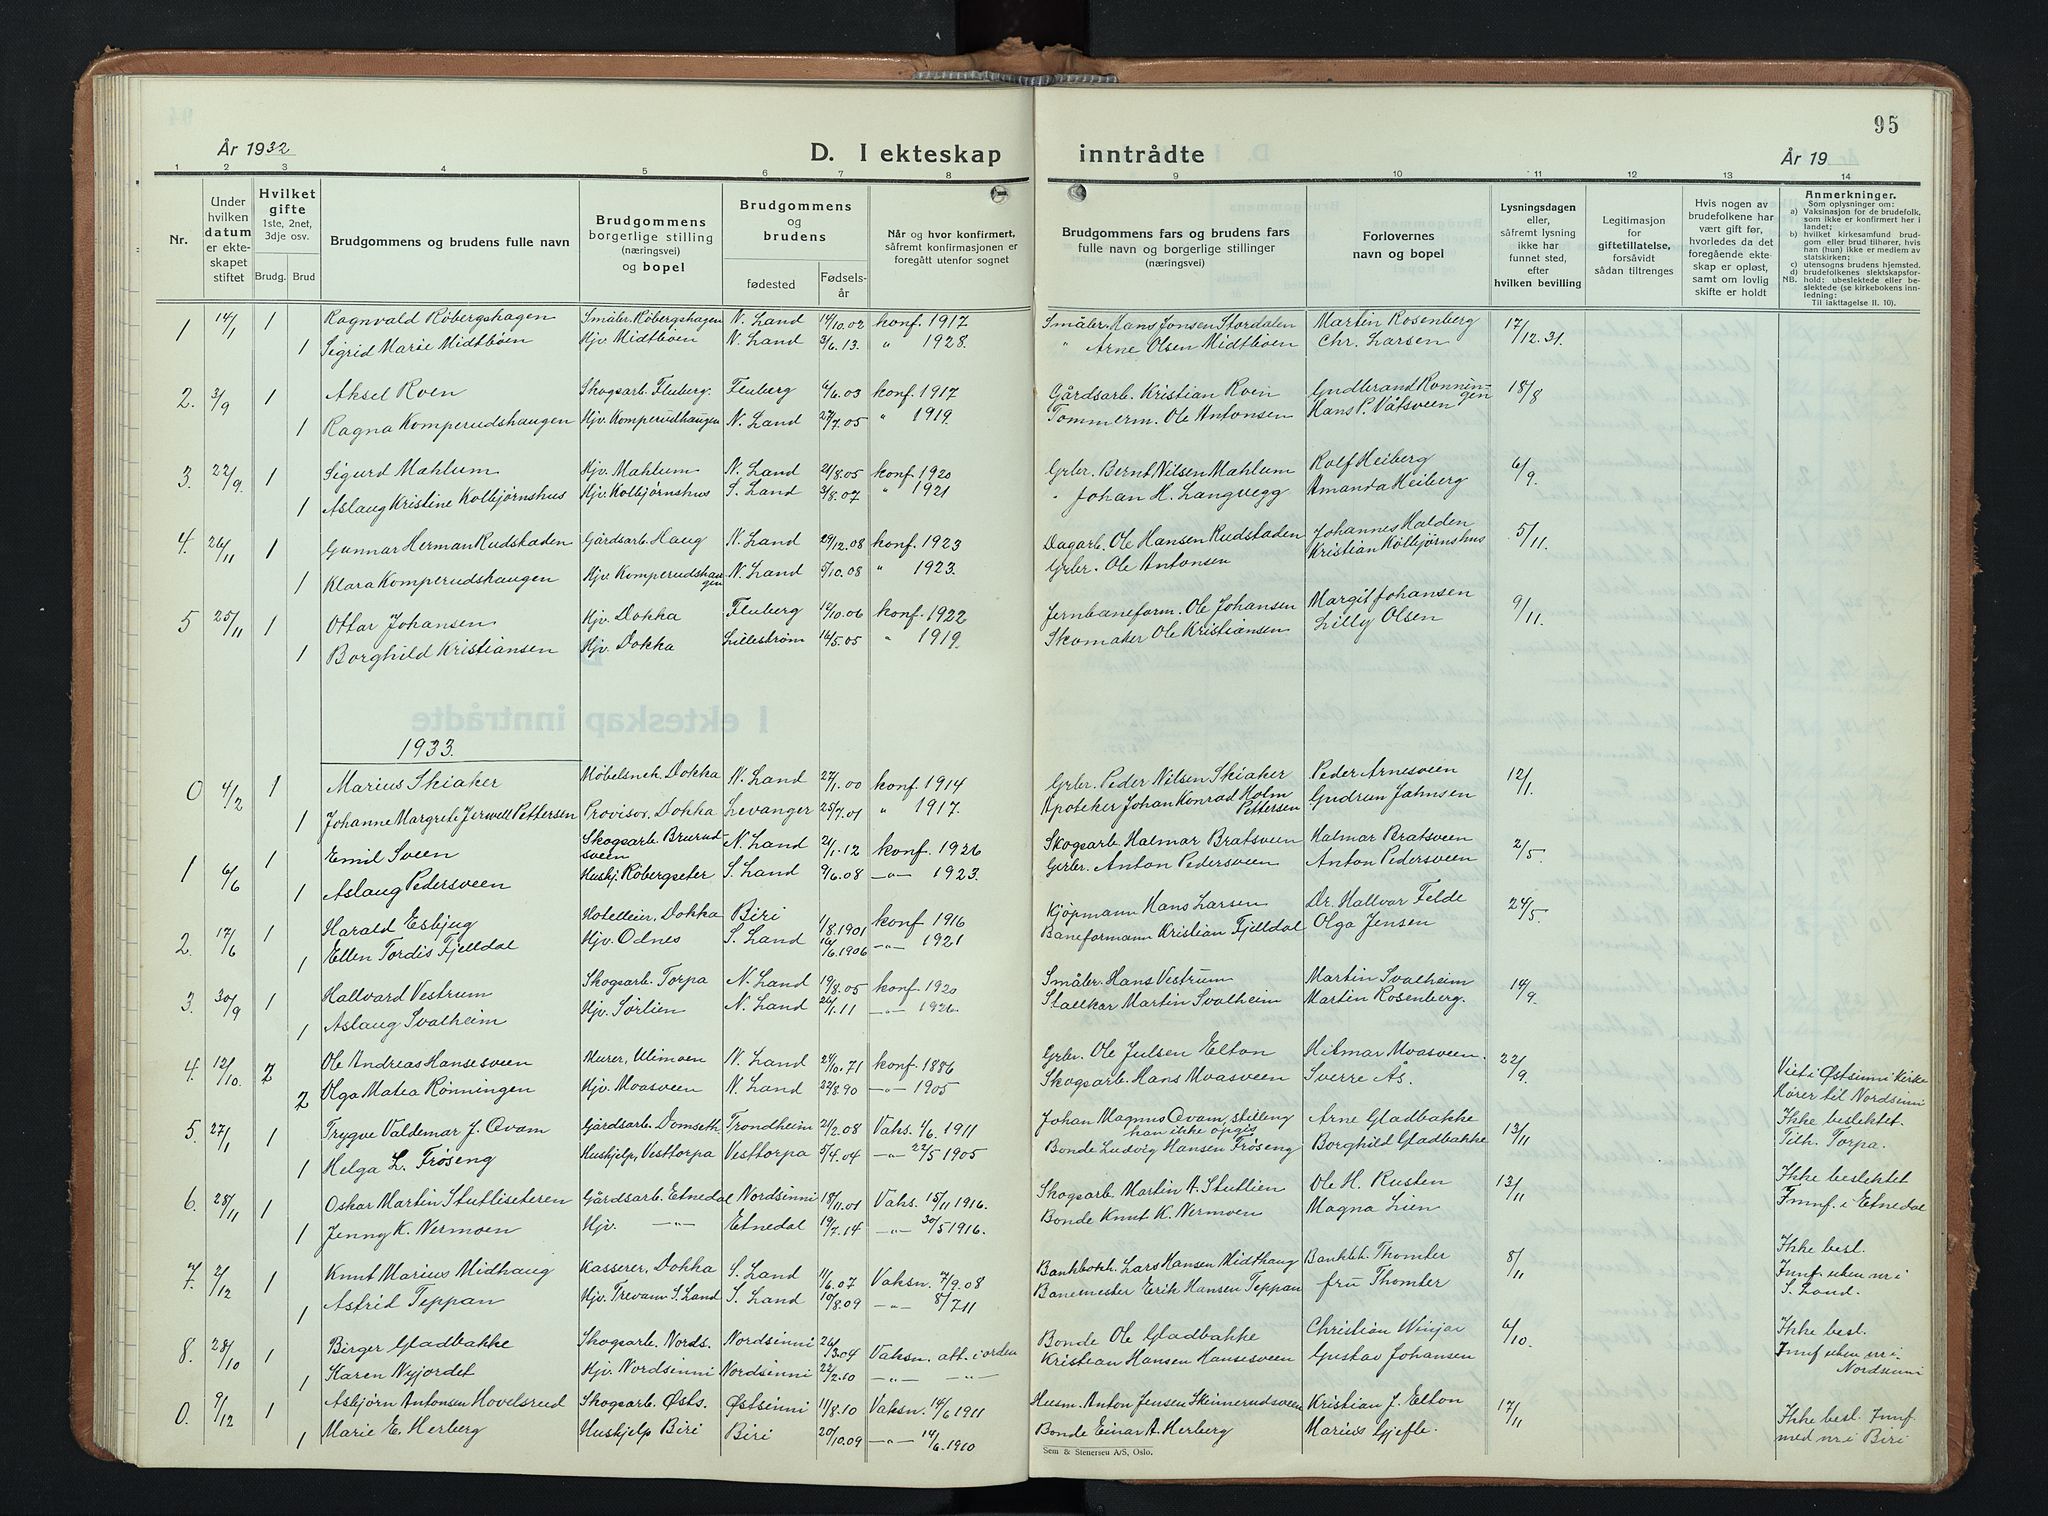 95
År 1932
D. I ekteskap inntrådte
År 19
1 2 3 4 5 6 7 8 9 10 11 12 13 14
Nr.
Under hvilken datum er ekteskapet stiftet
Hvilket gifte 1ste, 2net, 3dje osv.
Brudg. Brud
Brudgommens og brudens fulle navn
Brudgommens borgerlige stilling (næringsvei) og bopel
Brudgommens og brudens
fødested
Fødsels-år
Når og hvor konfirmert, såfremt konfirmasjonen er foregått utenfor sognet
Brudgommens fars og brudens fars fulle navn og borgerlige stillinger (næringsvei)
Forlovernes navn og bopel
Lysningsdagen eller, såfremt lysning ikke har funnet sted, efter hvilken bevilling
Legitimasjon for giftetillatelse, forsåvidt sådan tiltrenges
Hvis nogen av brudefolkene har vært gift før, hvorledes da det foregående ekteskap er opløst, samt om lovlig skifte er holdt
Anmerkninger.
Som oplysninger om:
a) Vaksinasjon for de brudefolk, som ikke er konfirmert her i landet;
b) hvilket kirkesamfund brudgom eller brud tilhører, hvis han (hun) ikke er medlem av statskirken;
c) utensogns brudens hjemsted.
d) brudefolkenes slektskapsforhold: ubeslektede eller beslektede (se kirkebokens innledning:
NB. Til iakttagelse II. 10).
1 14/1 1 Ragnvald Robergshagen Småbr. Robergshagen N. Land 14/10.02 konf. 1917 Småbr. Hans Jonsen Stordalen Martin Rosenberg 17/12.31.
1 Sigrid Marie Midtbøen Hjv. Midtbøen N. Land 3/6.13. " 1928. " Arne Olsen Midtbøen Chr. Larsen
2. 3/9 1 Aksel Roen Skogsarb. Fluberg. Fluberg 6/6.03 konf. 1917 Gårdsarb. Kristian Roen Gudbrand Rønningen 18/8
1 Ragna Komperudshaugen Hjv. Komperudhaugen N. Land 27/7.05 " 1919. Tømmerm. Ole Antonsen Hans P. Våtsveen
3. 22/9. 1 Sigurd Mahlum Hjv. Mahlum N. Land 21/8.05 konf. 1920 Grbr. Bernt Nilsen Mahlum Rolf Heiberg 6/9.
1 Aslaug Kristine Kolbjørnshus Hjv. Kolbjørnshus S. Land 3/8.07 " 1921 " Johan H. Langvegg Amanda Heiberg
4. 26/11 1 Gunnar Herman Rudstaden Gårdsarb. Haug N. Land 29/12.08 konf. 1923 Dagarb. Ole Hansen Rudstaden Johannes Halden 5/11.
1 Klara Komperudshaugen Hjv. Komperudshaugen N. Land 5/10.08 " 1923. Grbr. Ole Antonsen Kristian Kolbjørnshus
5 25/11 1 Ottar Johansen Hjv. Dokka Fluberg 12/10.06 konf. 1922 Jernbaneform. Ole Johansen Margit Johansen 9/11.
1 Borghild Kristiansen Hjv. Dokka Lillestrøm 16/5.05 " 1919. Skomaker Ole Kristiansen Lilly Olsen
1933.
0 4/2 1 Marius Skiaker Møbelsnek. Dokka N. Land 27/1.00 konf. 1914 Grbr. Peder Nilsen Skiaker Peder Arnesveen 12/1.
1 Johanne Margrete Jerwell Pettersen Provisor, Dokka Levanger 25/7.01 " 1917. Apoteker Johan Konrad Holm Pettersen Gudrun Jahnsen
1 6/6 1 Emil Sveen Skogsarb. Brurudsveen N. Land 21/1.12 konf. 1926 Skogsarb. Halmar Bratsveen Halmar Bratsveen 2/5.
1 Aslaug Pedersveen Huskj. Robergseter S. Land 9/6.08 -"- 1923. Grbr. Anton Pedersveen Anton Pedersveen
2. 17/6 1 Harald Esbjug Hotelleier, Dokka Biri 1/8.1901 konf 1916 Kjøpmann Hans Larsen Dr. Hallvar Felde 24/5.
1 Ellen Tordis Fjelldal Hjv. Odnes S. Land 16/6.1906 -"- 1921 Baneformann Kristian Fjelldal Olga Jensen
3. 30/9 1 Hallvard Vestrum Skogsarb. Torpa N. Land 19/8.05 konf. 1920 Småbr. Hans Vestrum Martin Svalheim 14/9.
1 Aslaug Svalheim Hjv. Sørlien N. Land 26/1.11 -"- 1926. Stallkar Martin Svalheim Martin Rosenberg.
4. 12/10. 2 Ole Andreas Hansesveen Murer, Ulimoen N. Land 24/10.71 konf. 1886 Grbr. Ole Julsen Elton Hilmar Moasveen. 22/9. Viet i Østsinni Kirke
2 Olga Matea Rønningen Hjv. Moasveen N. Land 22/8.90 -"- 1905 Skogsarb. Hans Moasveen Sverre Ås. Hører til Nordsinni
5. 27/1 1 Trygve Valdemar J. Qvam Gårdsarb. Domseth Trondheim 21/2.08 Vaks. 4/6. 1911 Johan Magnus Qvam, stilling kan ikke opgis Arne Gladbakke 13/11 Ikke beslektet.
1 Helga L. Frøseng Huskjelp, Vesttorpa Vesttorpa 5/4.04 -"- 22/5 1905 Bonde Ludvig Hansen Frøseng Borghild Gladbakke Tilh. Torpa.
6. 28/11 1 Oskar Martin Stutliseteren Gårdsarb. Etnedal Nordsinni 18/11.01 Vaks. 15/11 1916. Skogsarb. Martin A. Stutlien Ole H. Rusten 13/11 Ikke beslektet
1 Jenny K. Nermoen Hjv. -"- Etnedal 19/7.14 -"- 30/5 1916. Bonde Knut K. Nermoen Magna Lien Innf. i Etnedal
7. 2/12 1 Knut Marius Midhaug Kasserer, Dokka S. Land 11/6.07 Vaksn. 7/9.08 Bankbokh. Lars Hansen Midthaug Bankbok. Thomter 8/11 Ikke besl.
1 Astrid Teppan Hjv. Trevann S. Land S. Land 10/8.09 -"- 8/7 11 Banemester Erik Hansen Teppan fru Thomter Innf. uken nr i S. Land.
8. 28/10 1 Birger Gladbakke Skogsarb. Nords. Nordsinni 26/3.04 Vaksn. att. i orden Bonde Ole Gladbakke Christian Winjar 6/10. Ikke besl.
1 Karen Nyjordet Hjv. Nordsinni Nordsinni 22/2.10 -"- -"- Kristian Hansen Hansesveen Gustav Johansen Innf uken nr i Nordsinni
0. 9/12 1 Asbjørn Antonsen Hovelsrud Skogsarb. Østs. Østsinni 11/8.10 Vaksn. 14/6 1911 Husm. Anton Jensen Skinnerudsveen Kristian J. Elton 17/11 Ikke besl. Innf.
1 Marie E. Herberg Huskjelp Biri Biri 20/10.09 -"- 14/6.1910 Bonde Einar A. Herberg Marius Gjefle. med nr i Biri
Sem & Stenersen A/S, Oslo.